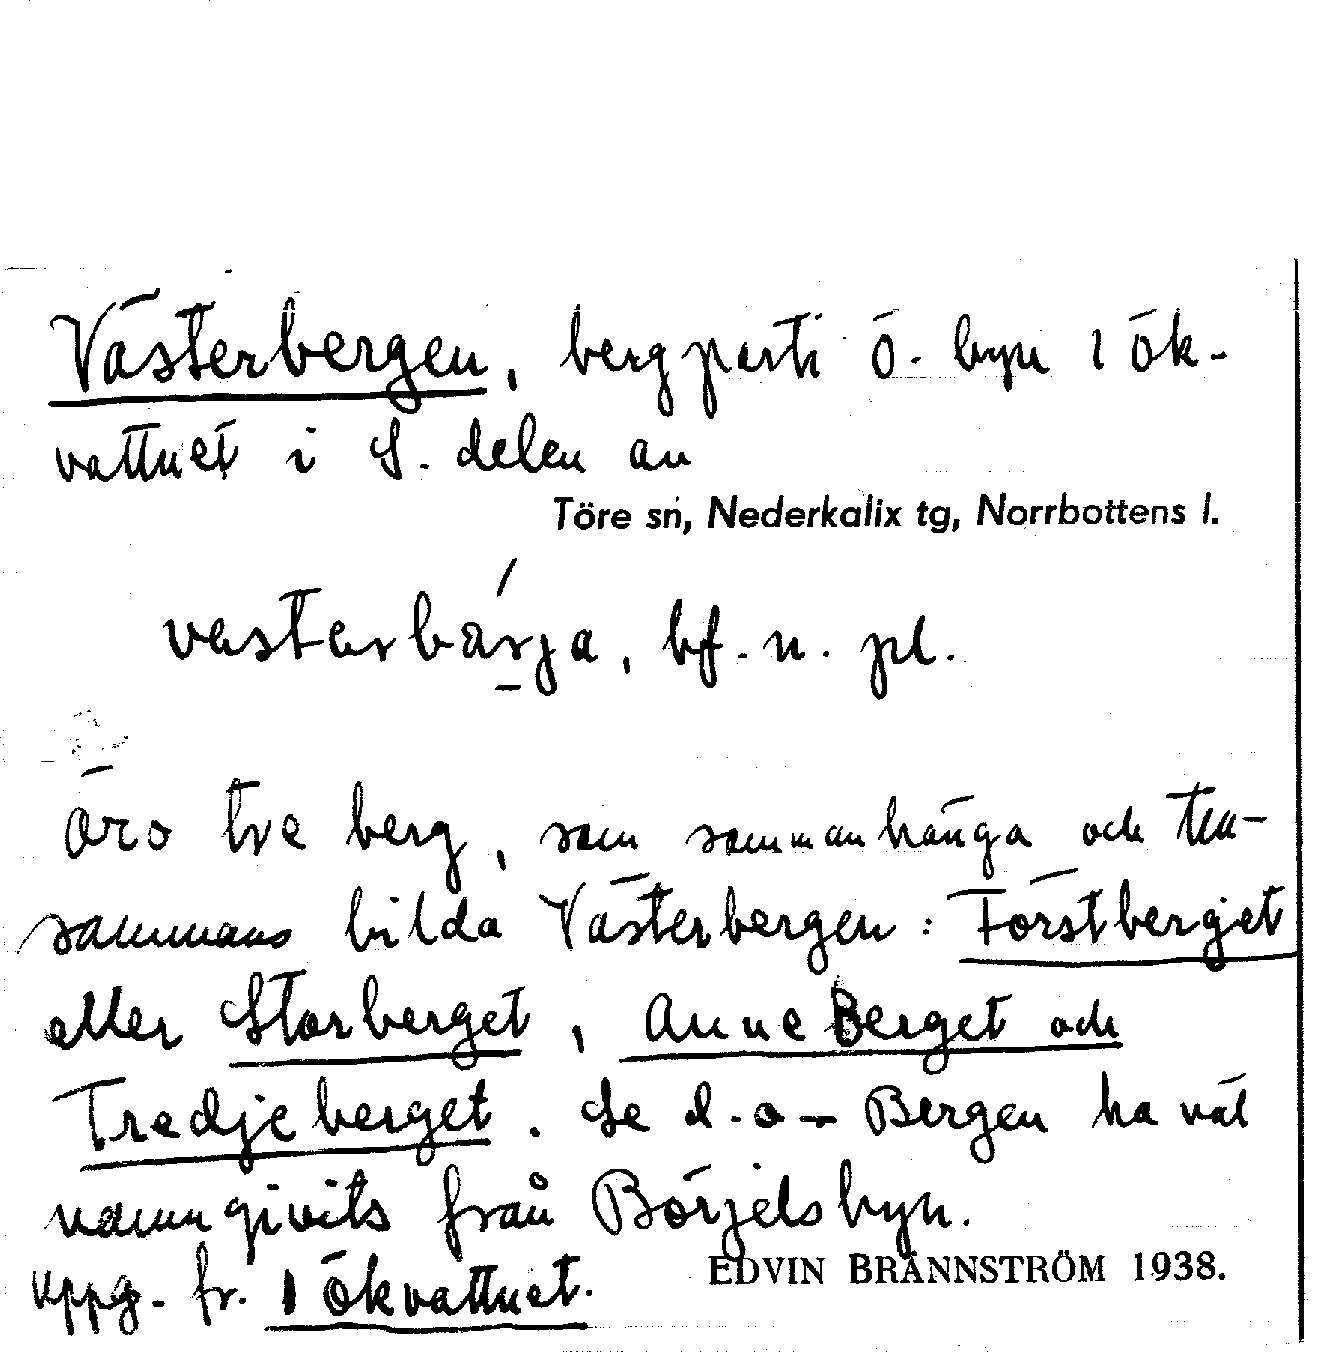 Västerbergen, bergparti ö. byn Lök-
vattnet i S. delen av
Töre sn, Nederkalix tg, Norrbottens l.
västarbärja, bf. n. pl.
Äro tre berg, som sammanhänga och till-
sammans bilda Västerbergen: Förstberget
eller Storberget, Anneberget och
Tredjeberget. Se d. o. – Bergen ha väl
namngivits från Börjelsbyn.
Uppg. fr. Lökvattnet.
EDVIN BRÄNNSTRÖM 1938.